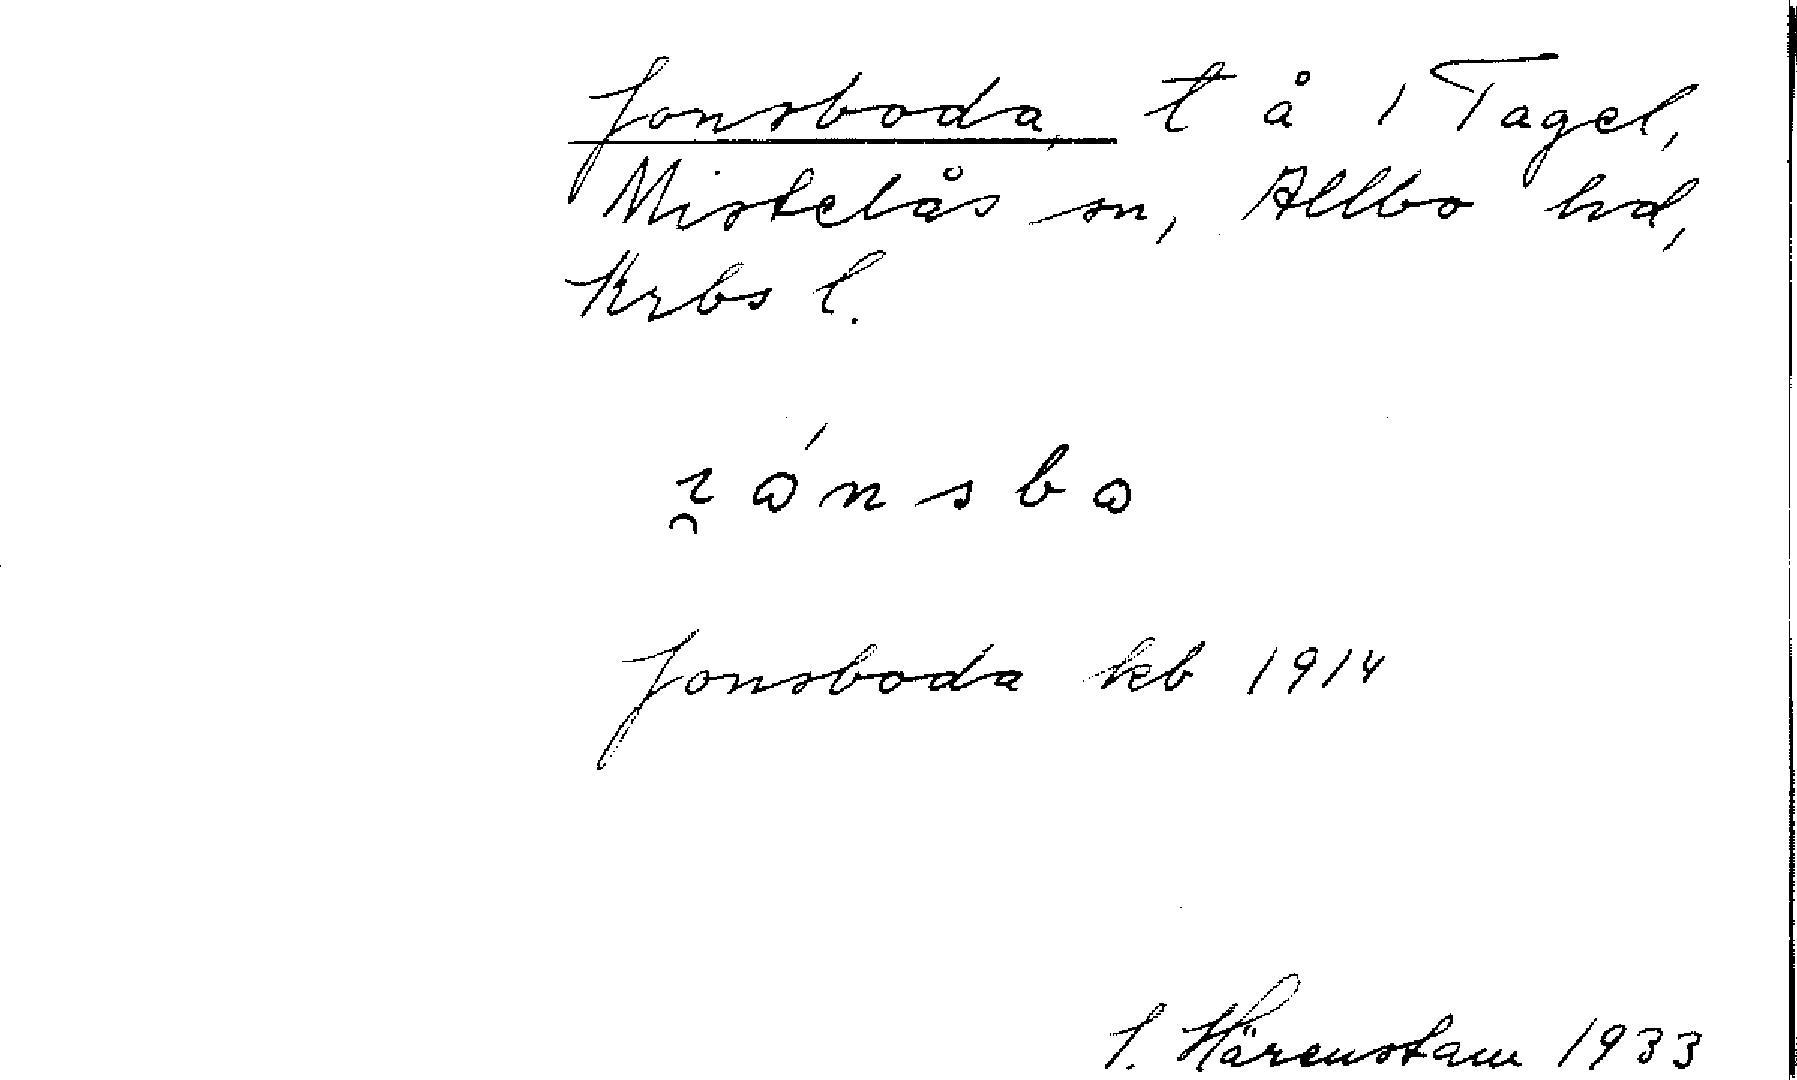 Jonsboda, t å i Tagel,
Mistelås sn, Allbo hd,
Krbs l.
Jonsboda kb 1914
S. Härenstam 1933